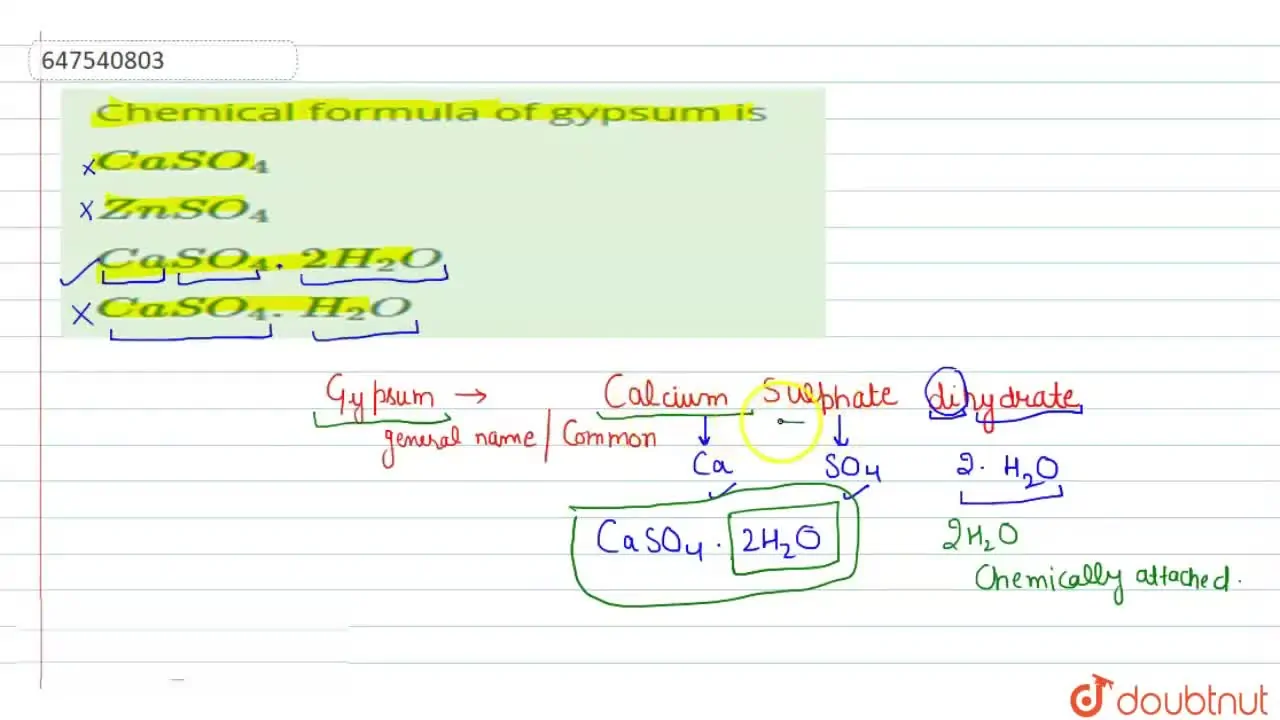 647540803
Chemical formula of gypsum is
x CaSO₄
x ZnSO₄
✓ CaSO₄. 2H₂O
x CaSO₄. H₂O
Gypsum → Calcium Sulphate dihydrate
general name / Common
Ca SO₄ 2. H₂O
CaSO₄ . 2H₂O 2H₂O
Chemically attached.
doubtnut